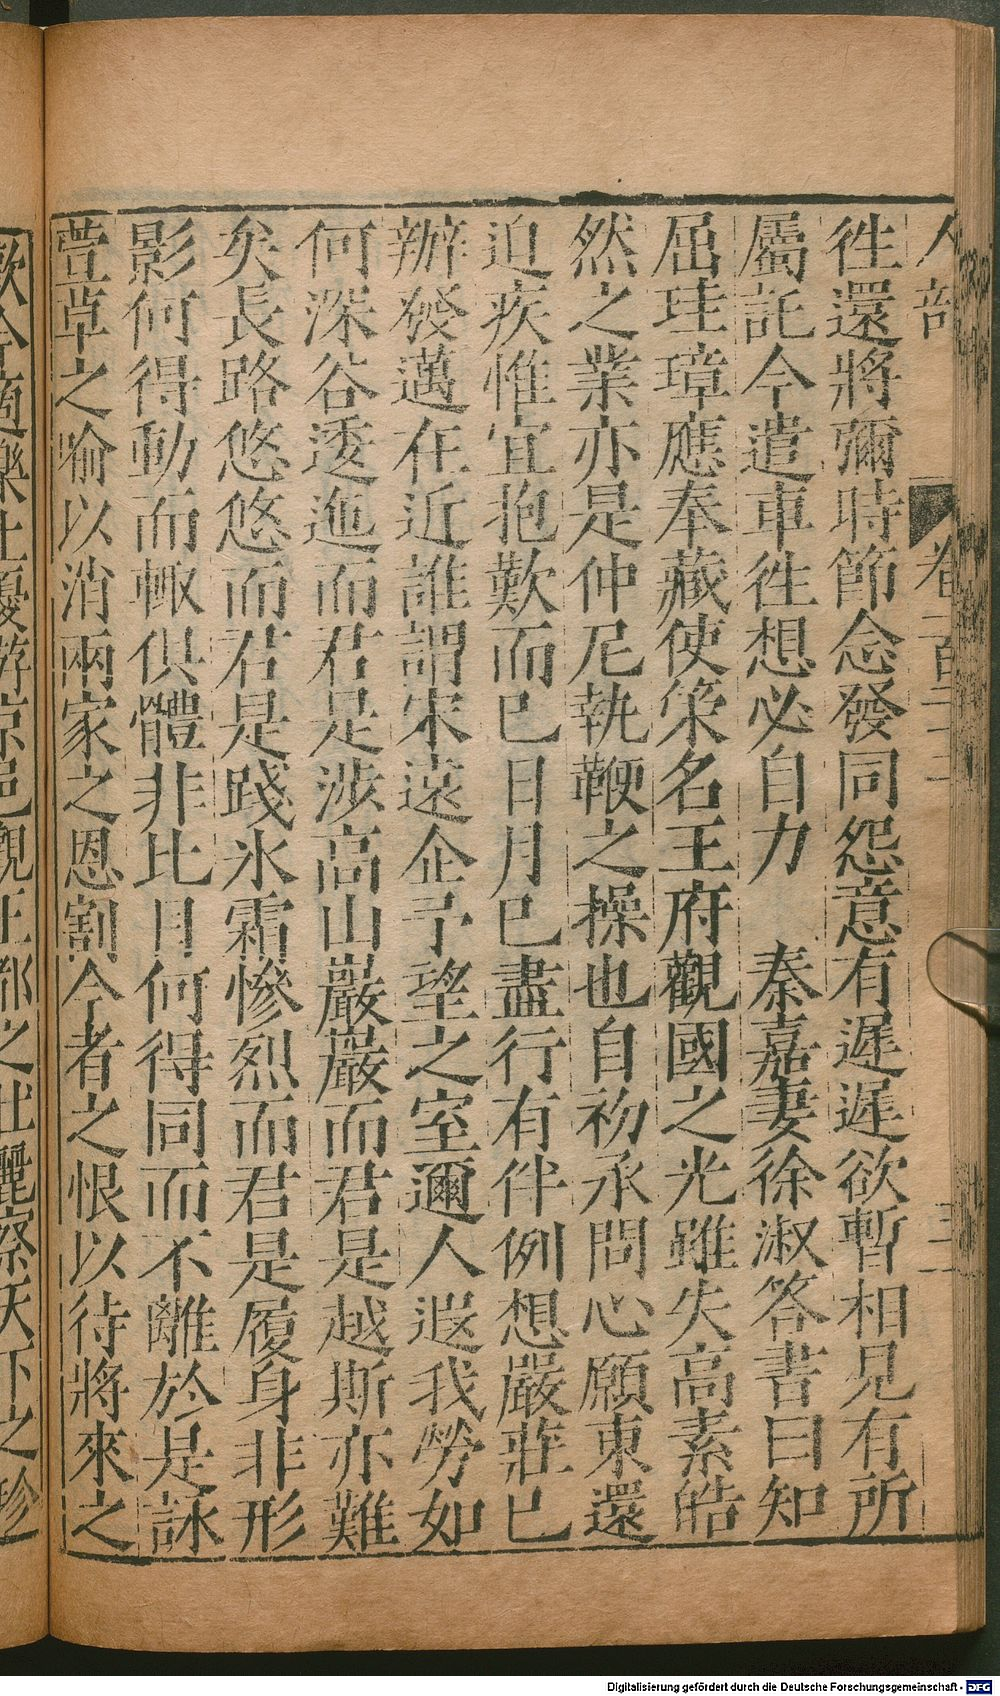 人部 卷二百三十三
往還將彌時節念發同怨意有遲遲欲暫相見有所
屬託今遣車往想必自力　秦嘉妻徐淑答書曰知
屈珪璋應奉藏使策名王府觀國之光雖失高素皓
然之業亦是仲尼執鞭之操也自初承問心願東還
迫疾惟宜抱歎而已日月已盡行有伴例想嚴莊已
辦發邁在近誰謂宋遠企予望之室邇人遐我勞如
何深谷逶迤而君是涉高山巖巖而君是越斯亦難
矣長路悠悠而君是踐氷霜慘烈而君是履身非形
影何得動而輙俱體非比目何得同而不離於是詠
萱草之喻以消兩家之恩割今者之恨以待將來之
歡今適樂土優遊京邑觀王都之壯麗察天下之珍
Digitalisierung gefördert durch die Deutsche Forschungsgemeinschaft - DFG